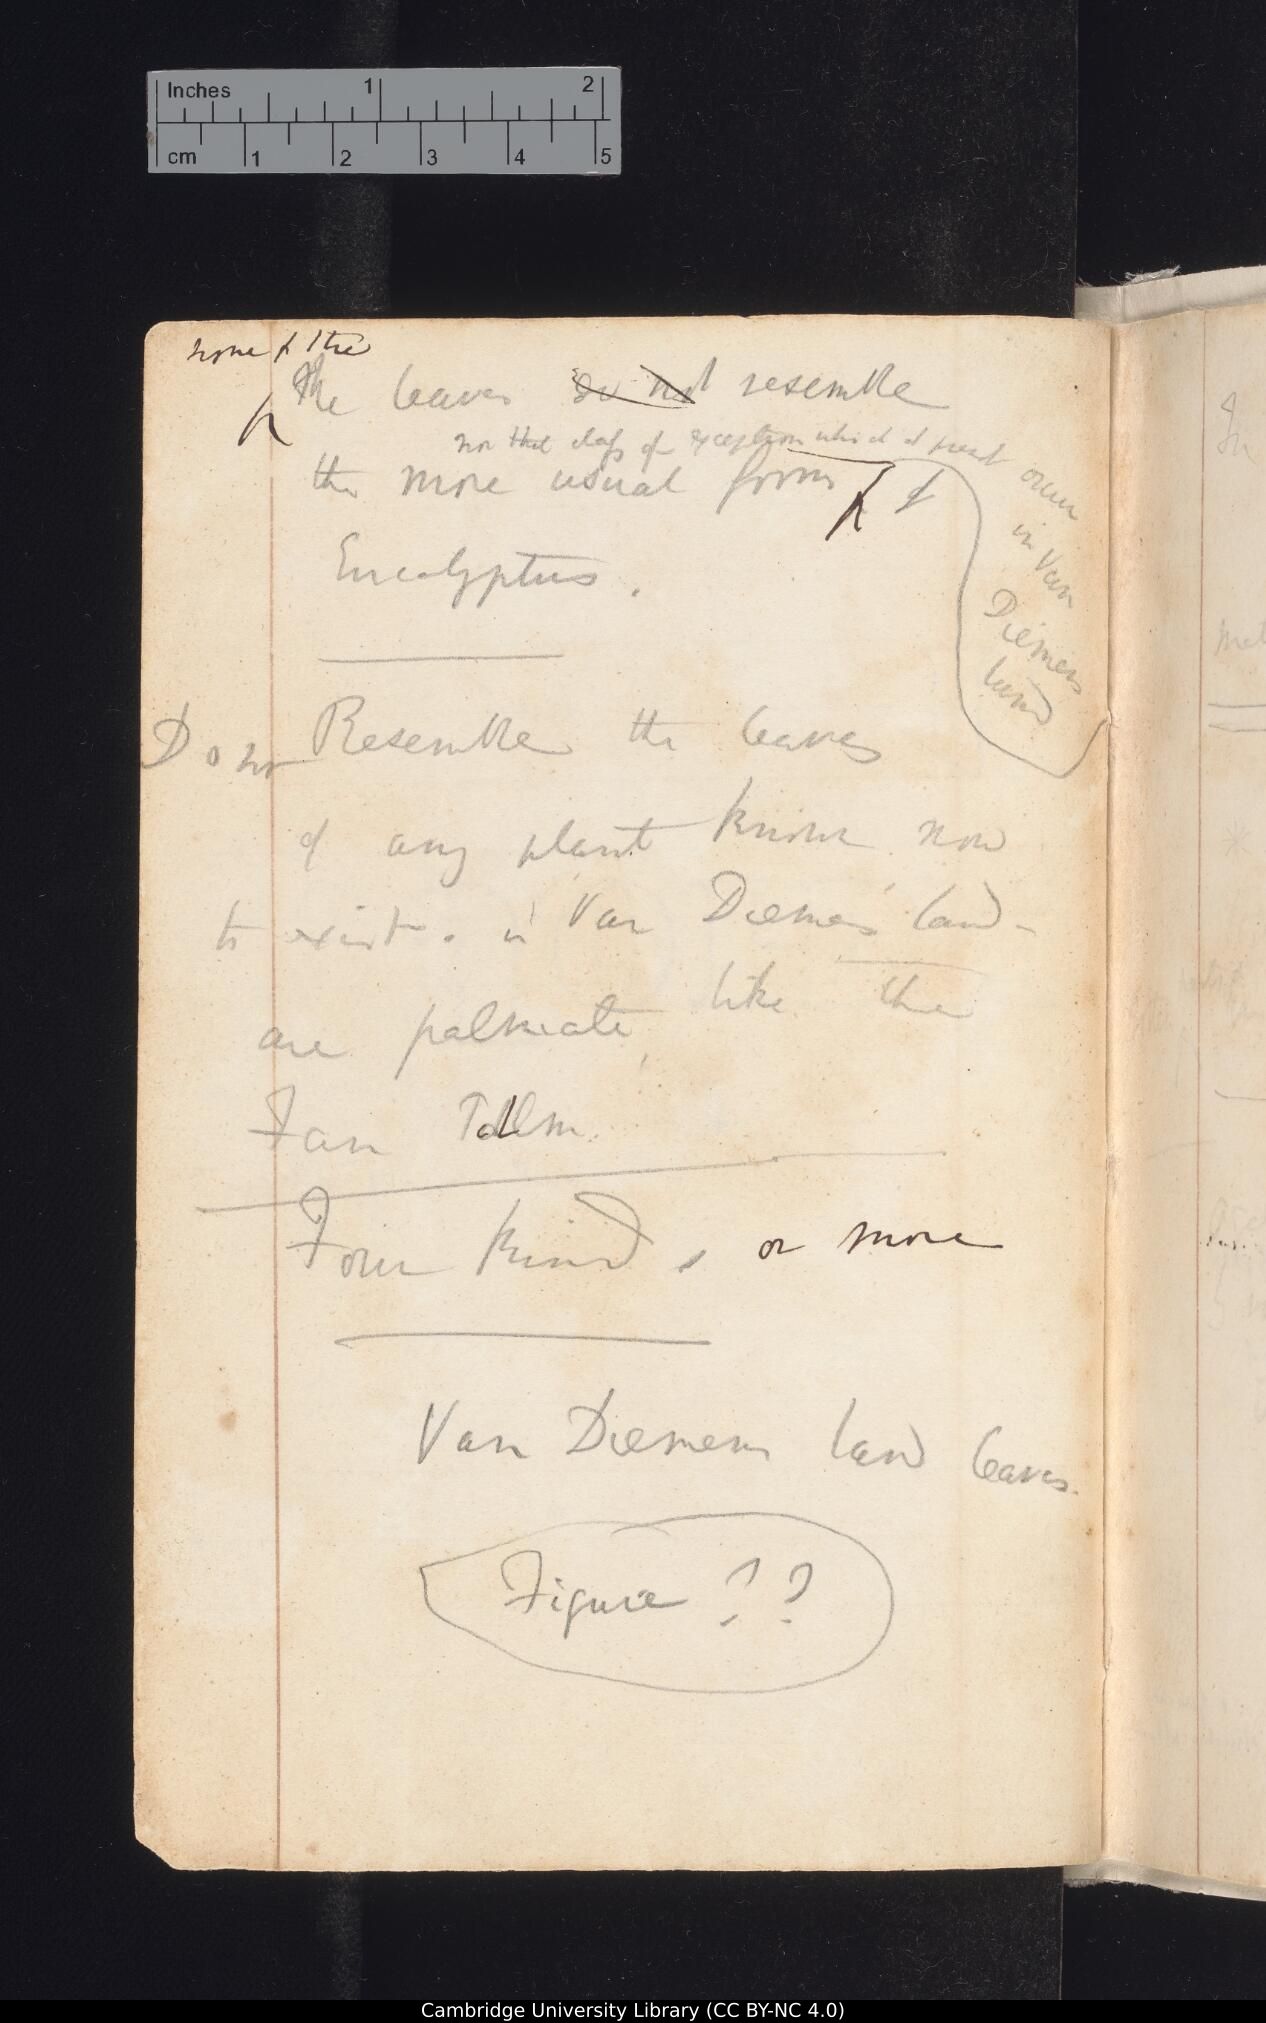 Inches 1 2
cm 1 2 3 4 5
none of the
The leaves do not resemble
nor that class of exception which at present occur
in Van
Diemens
land
the more usual form of
Eucalyptus.
Do not Resemble the leaves
of any plant known now
to exist. in Van Diemen's land-
are palmate, like the
Fan Palm.
Four kinds or more
Van Diemens land leaves.
Figure ??
Cambridge University Library (CC BY-NC 4.0)